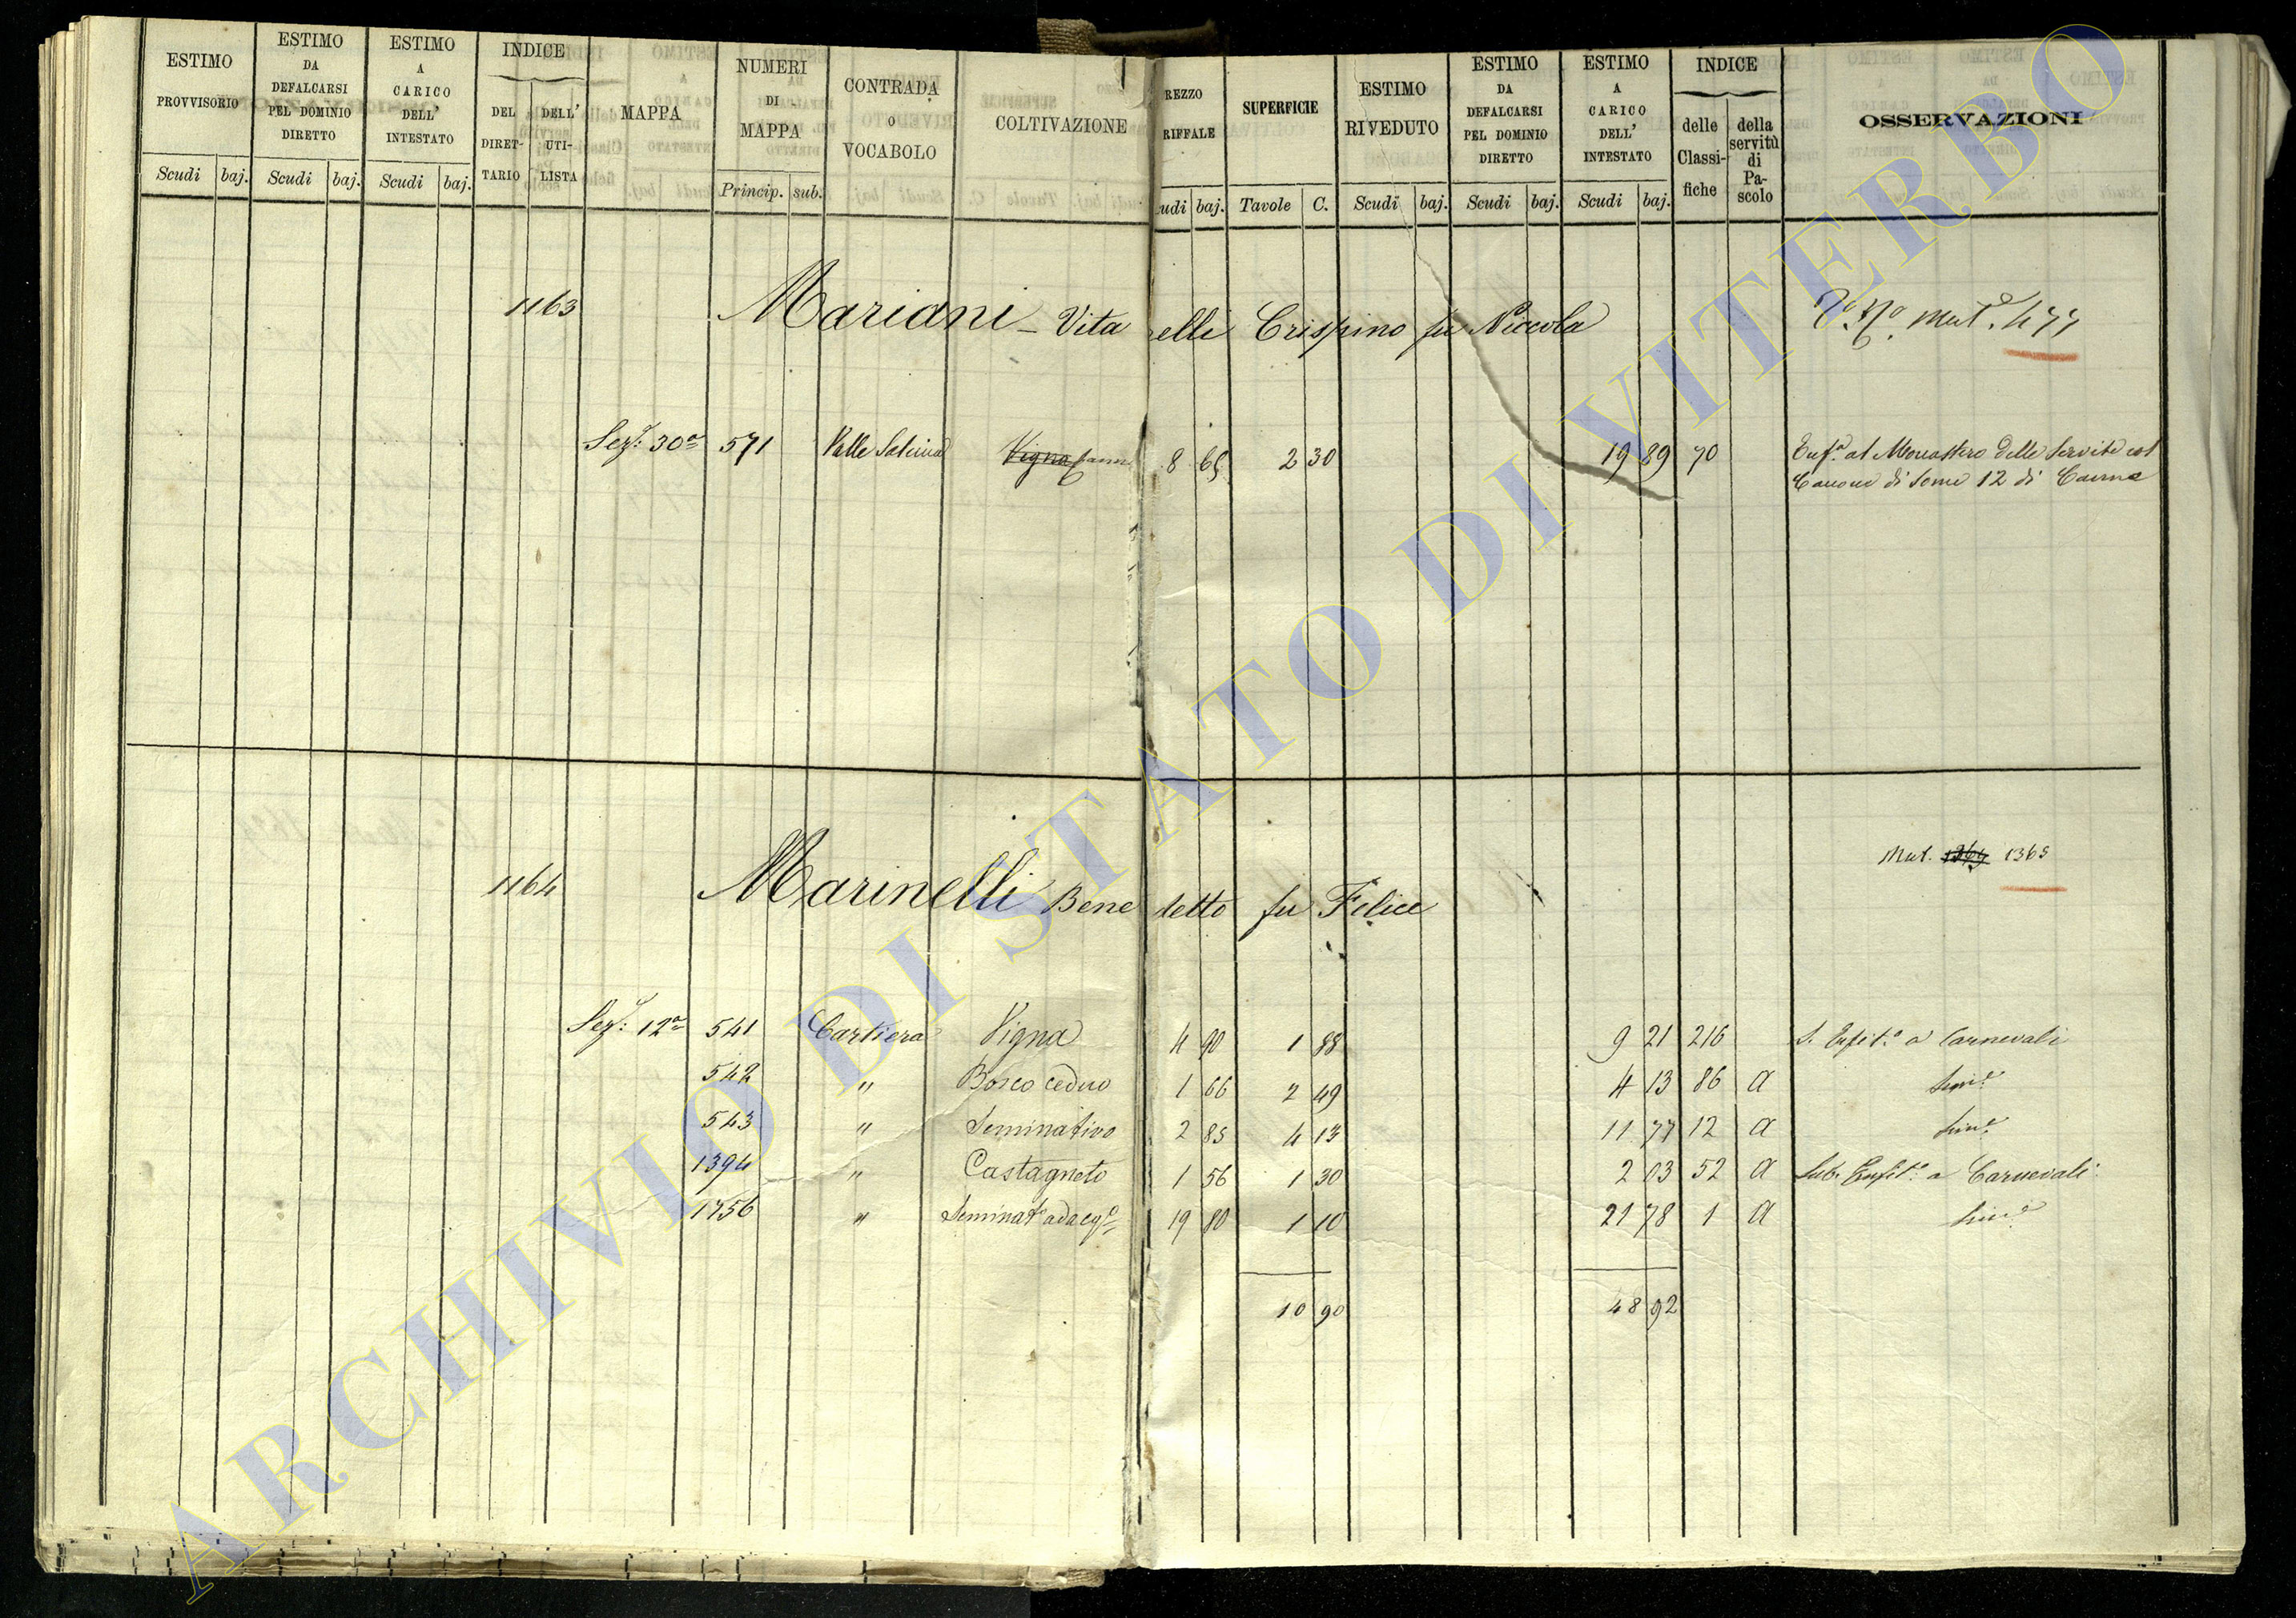 ESTIMO PROVVISORIO Scudi baj.
ESTIMO DA DEFALCARSI PEL DOMINIO DIRETTO Scudi baj.
ESTIMO A CARICO DELL' INTESTATO Scudi baj.
INDICE DEL DIRET-TARIO DELL' UTI-LISTA
MAPPA
NUMERI DI MAPPA Princip. sub.
CONTRADA O VOCABOLO
COLTIVAZIONE
REZZO RIFFALE udi baj.
SUPERFICIE Tavole C.
ESTIMO RIVEDUTO Scudi baj.
ESTIMO DA DEFALCARSI PEL DOMINIO DIRETTO Scudi baj.
ESTIMO A CARICO DELL' INTESTATO Scudi baj.
INDICE delle Classi-fiche della servitù di Pa-scolo
OSSERVAZIONI
1163 Mariani - Vita elli Crispino fu Niccola mut. 477
Sez: 30a 571 Valle Vigna 8 65 2 30 19 89 70 al Monastero delle Servite col
Canone di Some 12 di
Mut. 1364 1365
1164 Marinelli Bene detto fu Felice
Sez: 12a 541 Cartiera Vigna 4 90 1 88 9 21 216 S. Enfit.a a Carnevali
542 " Bosco ceduo 1 66 2 49 4 13 86 a Sim.e
543 " Seminativo 2 85 4 13 11 77 12 a Sim.e
1394 " Castagneto 1 56 1 30 2 03 52 a Sub. Enfit.a a Carnevali
1756 " Seminat.o adacq.o 19 80 1 10 21 78 1 a Sim.e
10 90 48 92
ARCHIVIO DI STATO DI VITERBO